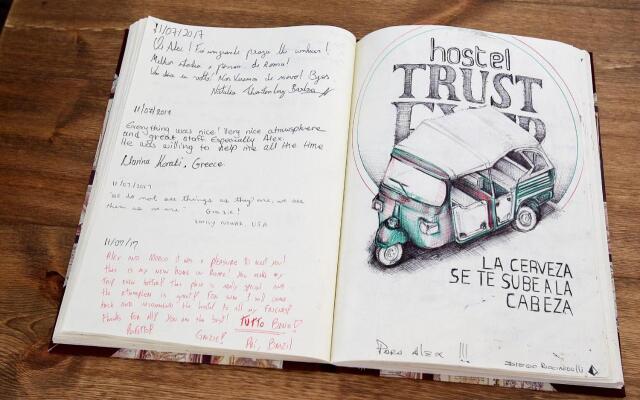 11/07/2017
Oi Alex! Foi um grande prazer lhe conhecer!
Melhor staff e pessoa de Roma!
Um dia eu volto! Nos vemos de novo! Bjos
Natália
11/07/2017
Everything was nice! Very nice atmosphere
and great staff. Especially Alex.
He was willing to help me all the time
Marina Koraki, Greece
11/07/2017
"We do not see things as they are, we see
them as we are."
Grazie!
Emily, USA
11/07/17
Alex and Marco it was a pleasure to meet you!
this is my new home in Rome! You make my
trip even better! This place is really special and
the atmosphere is great! For sure I will come
back and recommend the hostel to all my friends!
thanks for all! You are the best! TUTTO BENE!
Perfetto!
Grazie!
Brazil
hostel
TRUST
EVER
LA CERVEZA
SE TE SUBE A LA
CABEZA
PARA ALEX !!!